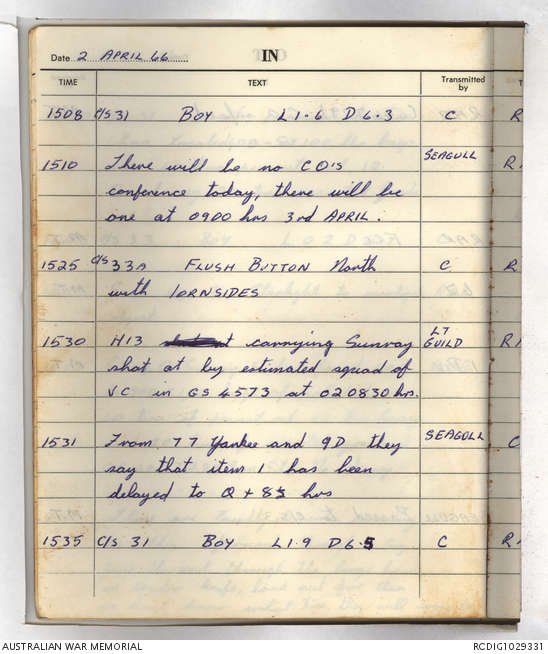 Date 2 APRIL 66 IN
TIME TEXT Transmitted by T
1508 C/S 31 BOY L1-6 D6-3 C R
1510 There will be no CO's SEAGULL R.
conference today, there will be
one at 0900 hrs 3rd APRIL.
1525 C/S 33A FLUSH BUTTON North C R
with IORNSIDES
1530 H13 carrying Sunray LT GUILD R
shot at by estimated squad of
VC in GS 4573 at 020830 hrs.
1531 From 77 Yankee and 9D they SEAGULL C
say that item 1 has been
delayed to Q + 85 hrs
1535 C/S 31 BOY L1-9 D6-5 C R
AUSTRALIAN WAR MEMORIAL RCDIG1029331